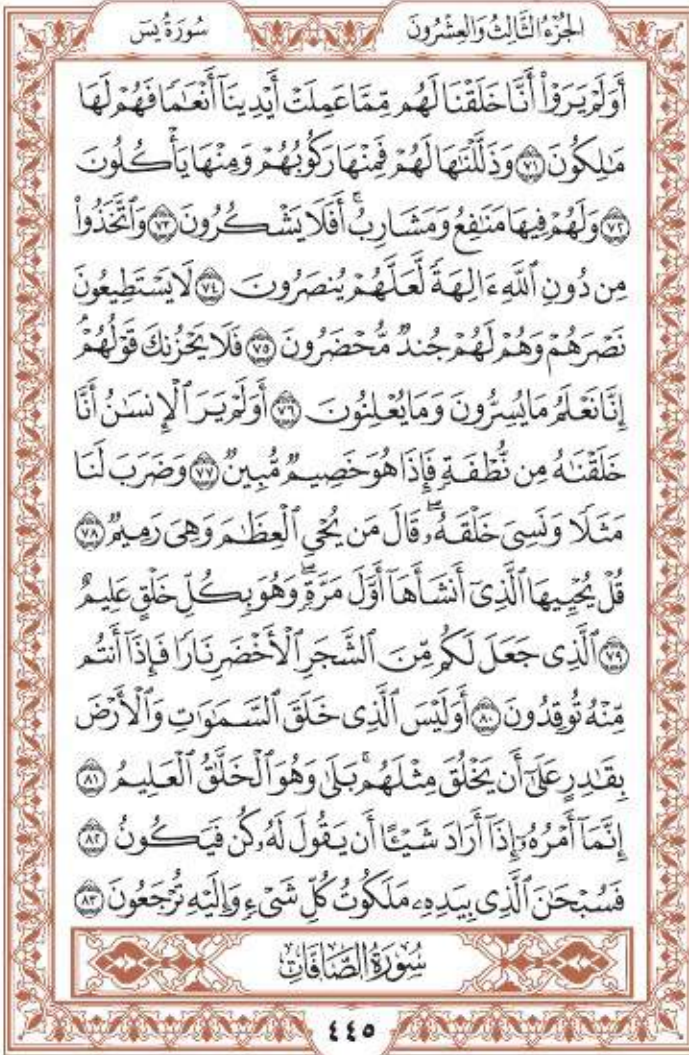 الجُزْءُ الثَّالِثُ وَالعِشْرُونَ سُورَةُ يسٓ
أَوَلَمۡ يَرَوۡاْ أَنَّا خَلَقۡنَا لَهُم مِّمَّا عَمِلَتۡ أَيۡدِينَآ أَنۡعَٰمٗا فَهُمۡ لَهَا
مَٰلِكُونَ ٧١ وَذَلَّلۡنَٰهَا لَهُمۡ فَمِنۡهَا رَكُوبُهُمۡ وَمِنۡهَا يَأۡكُلُونَ
٧٢ وَلَهُمۡ فِيهَا مَنَٰفِعُ وَمَشَارِبُۚ أَفَلَا يَشۡكُرُونَ ٧٣ وَٱتَّخَذُواْ
مِن دُونِ ٱللَّهِ ءَالِهَةٗ لَّعَلَّهُمۡ يُنصَرُونَ ٧٤ لَا يَسۡتَطِيعُونَ
نَصۡرَهُمۡ وَهُمۡ لَهُمۡ جُندٞ مُّحۡضَرُونَ ٧٥ فَلَا يَحۡزُنكَ قَوۡلُهُمۡۘ
إِنَّا نَعۡلَمُ مَا يُسِرُّونَ وَمَا يُعۡلِنُونَ ٧٦ أَوَلَمۡ يَرَ ٱلۡإِنسَٰنُ أَنَّا
خَلَقۡنَٰهُ مِن نُّطۡفَةٖ فَإِذَا هُوَ خَصِيمٞ مُّبِينٞ ٧٧ وَضَرَبَ لَنَا
مَثَلٗا وَنَسِيَ خَلۡقَهُۥۖ قَالَ مَن يُحۡيِ ٱلۡعِظَٰمَ وَهِيَ رَمِيمٞ ٧٨
قُلۡ يُحۡيِيهَا ٱلَّذِيٓ أَنشَأَهَآ أَوَّلَ مَرَّةٖۖ وَهُوَ بِكُلِّ خَلۡقٍ عَلِيمٌ
٧٩ ٱلَّذِي جَعَلَ لَكُم مِّنَ ٱلشَّجَرِ ٱلۡأَخۡضَرِ نَارٗا فَإِذَآ أَنتُم
مِّنۡهُ تُوقِدُونَ ٨٠ أَوَلَيۡسَ ٱلَّذِي خَلَقَ ٱلسَّمَٰوَٰتِ وَٱلۡأَرۡضَ
بِقَٰدِرٍ عَلَىٰٓ أَن يَخۡلُقَ مِثۡلَهُمۚ بَلَىٰ وَهُوَ ٱلۡخَلَّٰقُ ٱلۡعَلِيمُ ٨١
إِنَّمَآ أَمۡرُهُۥٓ إِذَآ أَرَادَ شَيۡـًٔا أَن يَقُولَ لَهُۥ كُن فَيَكُونُ ٨٢
فَسُبۡحَٰنَ ٱلَّذِي بِيَدِهِۦ مَلَكُوتُ كُلِّ شَيۡءٖ وَإِلَيۡهِ تُرۡجَعُونَ ٨٣
سُورَةُ الصَّافَّاتِ
٤٤٥